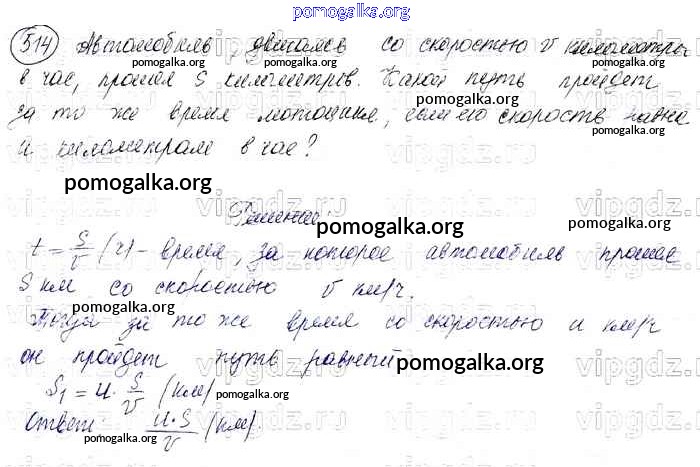 pomogalka.org
514 Автомобиль, двигаясь со скоростью v километров
pomogalka.org
в час, прошел S километров. Какой путь пройдет
pomogalka.org
за то же время мотоцикл, если его скорость равна
pomogalka.org
u километрам в час?
vipgdz.ru
pomogalka.org
pomogalka.org
vipgdz.ru
Решение:
pomogalka.org
t = S/v (ч) - время, за которое автомобиль прошел
S км со скоростью v км/ч.
vipgdz.ru
pomogalka.org
Тогда за то же время со скоростью u км/ч
pomogalka.org
он пройдет путь равный
pomogalka.org
vipgdz.ru
S₁ = u · S/v (км)
pomogalka.org
Ответ: u·S/v (км).
vipgdz.ru
pomogalka.org
pomogalka.org